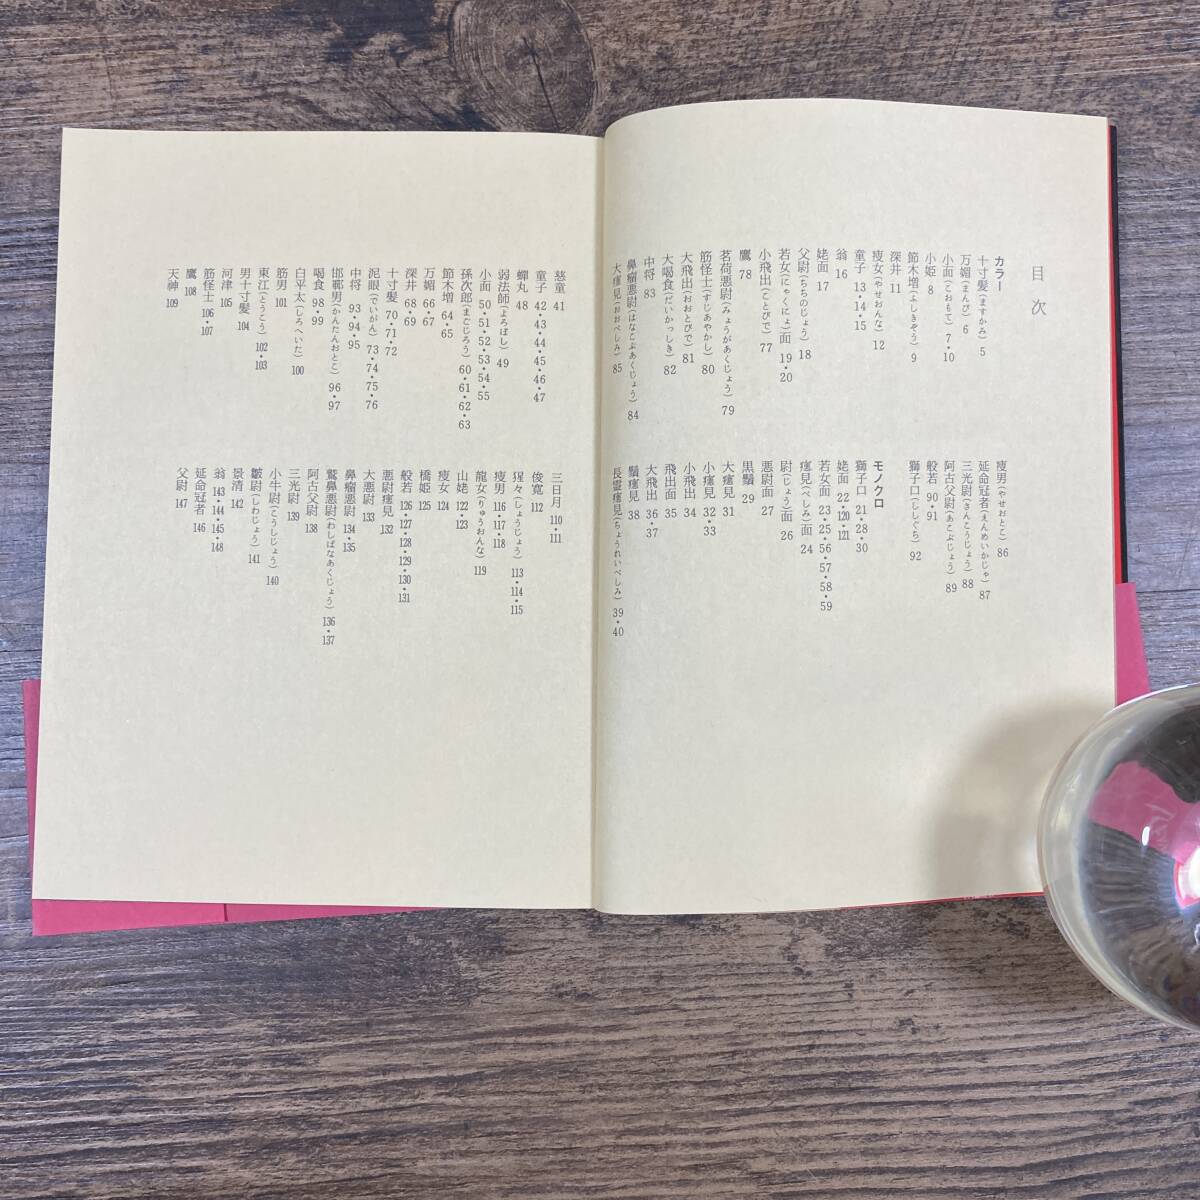 目次
カラー
十寸髪(ますかみ) 5
万媚(まんび) 6
小面(こおもて) 7・10
小姫 8
節木増(ふしきぞう) 9
深井 11
痩女(やせおんな) 12
童子 13・14・15
翁 16
姥面 17
父尉(ちちのじょう) 18
若女(にゃくにょ)面 19・20
小飛出(ことびで) 77
鷹 78
茗荷悪尉(みょうがあくじょう) 79
筋怪士(すじあやかし) 80
大飛出(おおとびで) 81
大喝食(だいかっしき) 82
中将 83
鼻瘤悪尉(はなこぶあくじょう) 84
大癋見(おおべしみ) 85
痩男(やせおとこ) 86
延命冠者(えんめいかじゃ) 87
三光尉(さんこうじょう) 88
阿古父尉(あこぶじょう) 89
般若 90・91
獅子口(ししぐち) 92
モノクロ
獅子口 21・28・30
姥面 22・120・121
若女面 23・25・56・57・58・59
癋見(べしみ)面 24
尉(じょう)面 26
悪尉面 27
黒鬚 29
大癋見 31
小癋見 32・33
小飛出 34
飛出面 35
大飛出 36・37
鬚癋見 38
長霊癋見(ちょうれいべしみ) 39・40
慈童 41
童子 42・43・44・45・46・47
蟬丸 48
弱法師(よろぼし) 49
小面 50・51・52・53・54・55
孫次郎(まごじろう) 60・61・62・63
節木増 64・65
万媚 66・67
深井 68・69
十寸髪 70・71・72
泥眼(でいがん) 73・74・75・76
中将 93・94・95
邯鄲男(かんたんおとこ) 96・97
喝食 98・99
白平太(しろへいた) 100
筋男 101
東江(とうこう) 102・103
男十寸髪 104
河津 105
筋怪士 106・107
鷹 108
天神 109
三日月 110・111
俊寛 112
猩々(しょうじょう) 113・114・115
痩男 116・117・118
龍女(りゅうおんな) 119
山姥 122・123
痩女 124
橋姫 125
般若 126・127・128・129・130・131
悪尉癋見 132
大悪尉 133
鼻瘤悪尉 134・135
鷲鼻悪尉(わしばなあくじょう) 136・137
阿古父尉 138
三光尉 139
小牛尉(こうしじょう) 140
皺尉(しわじょう) 141
景清 142
翁 143・144・145・148
延命冠者 146
父尉 147